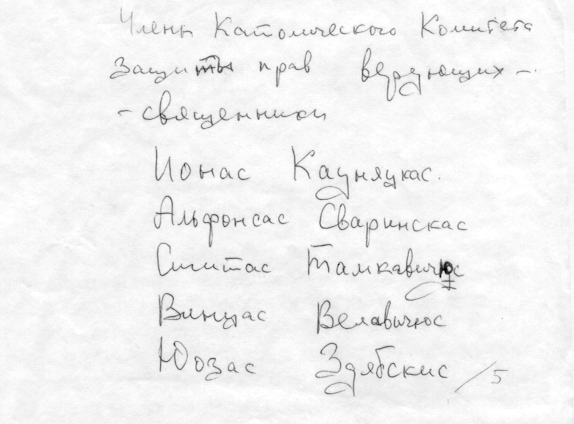 Члены Католического Комитета
Защиты прав верующих –
– священники
Ионас Кауняцкас.
Альфонсас Сваринскас
Сигитас Тамкавичюс
Винцас Велавичюс
Юозас Здябскис /5